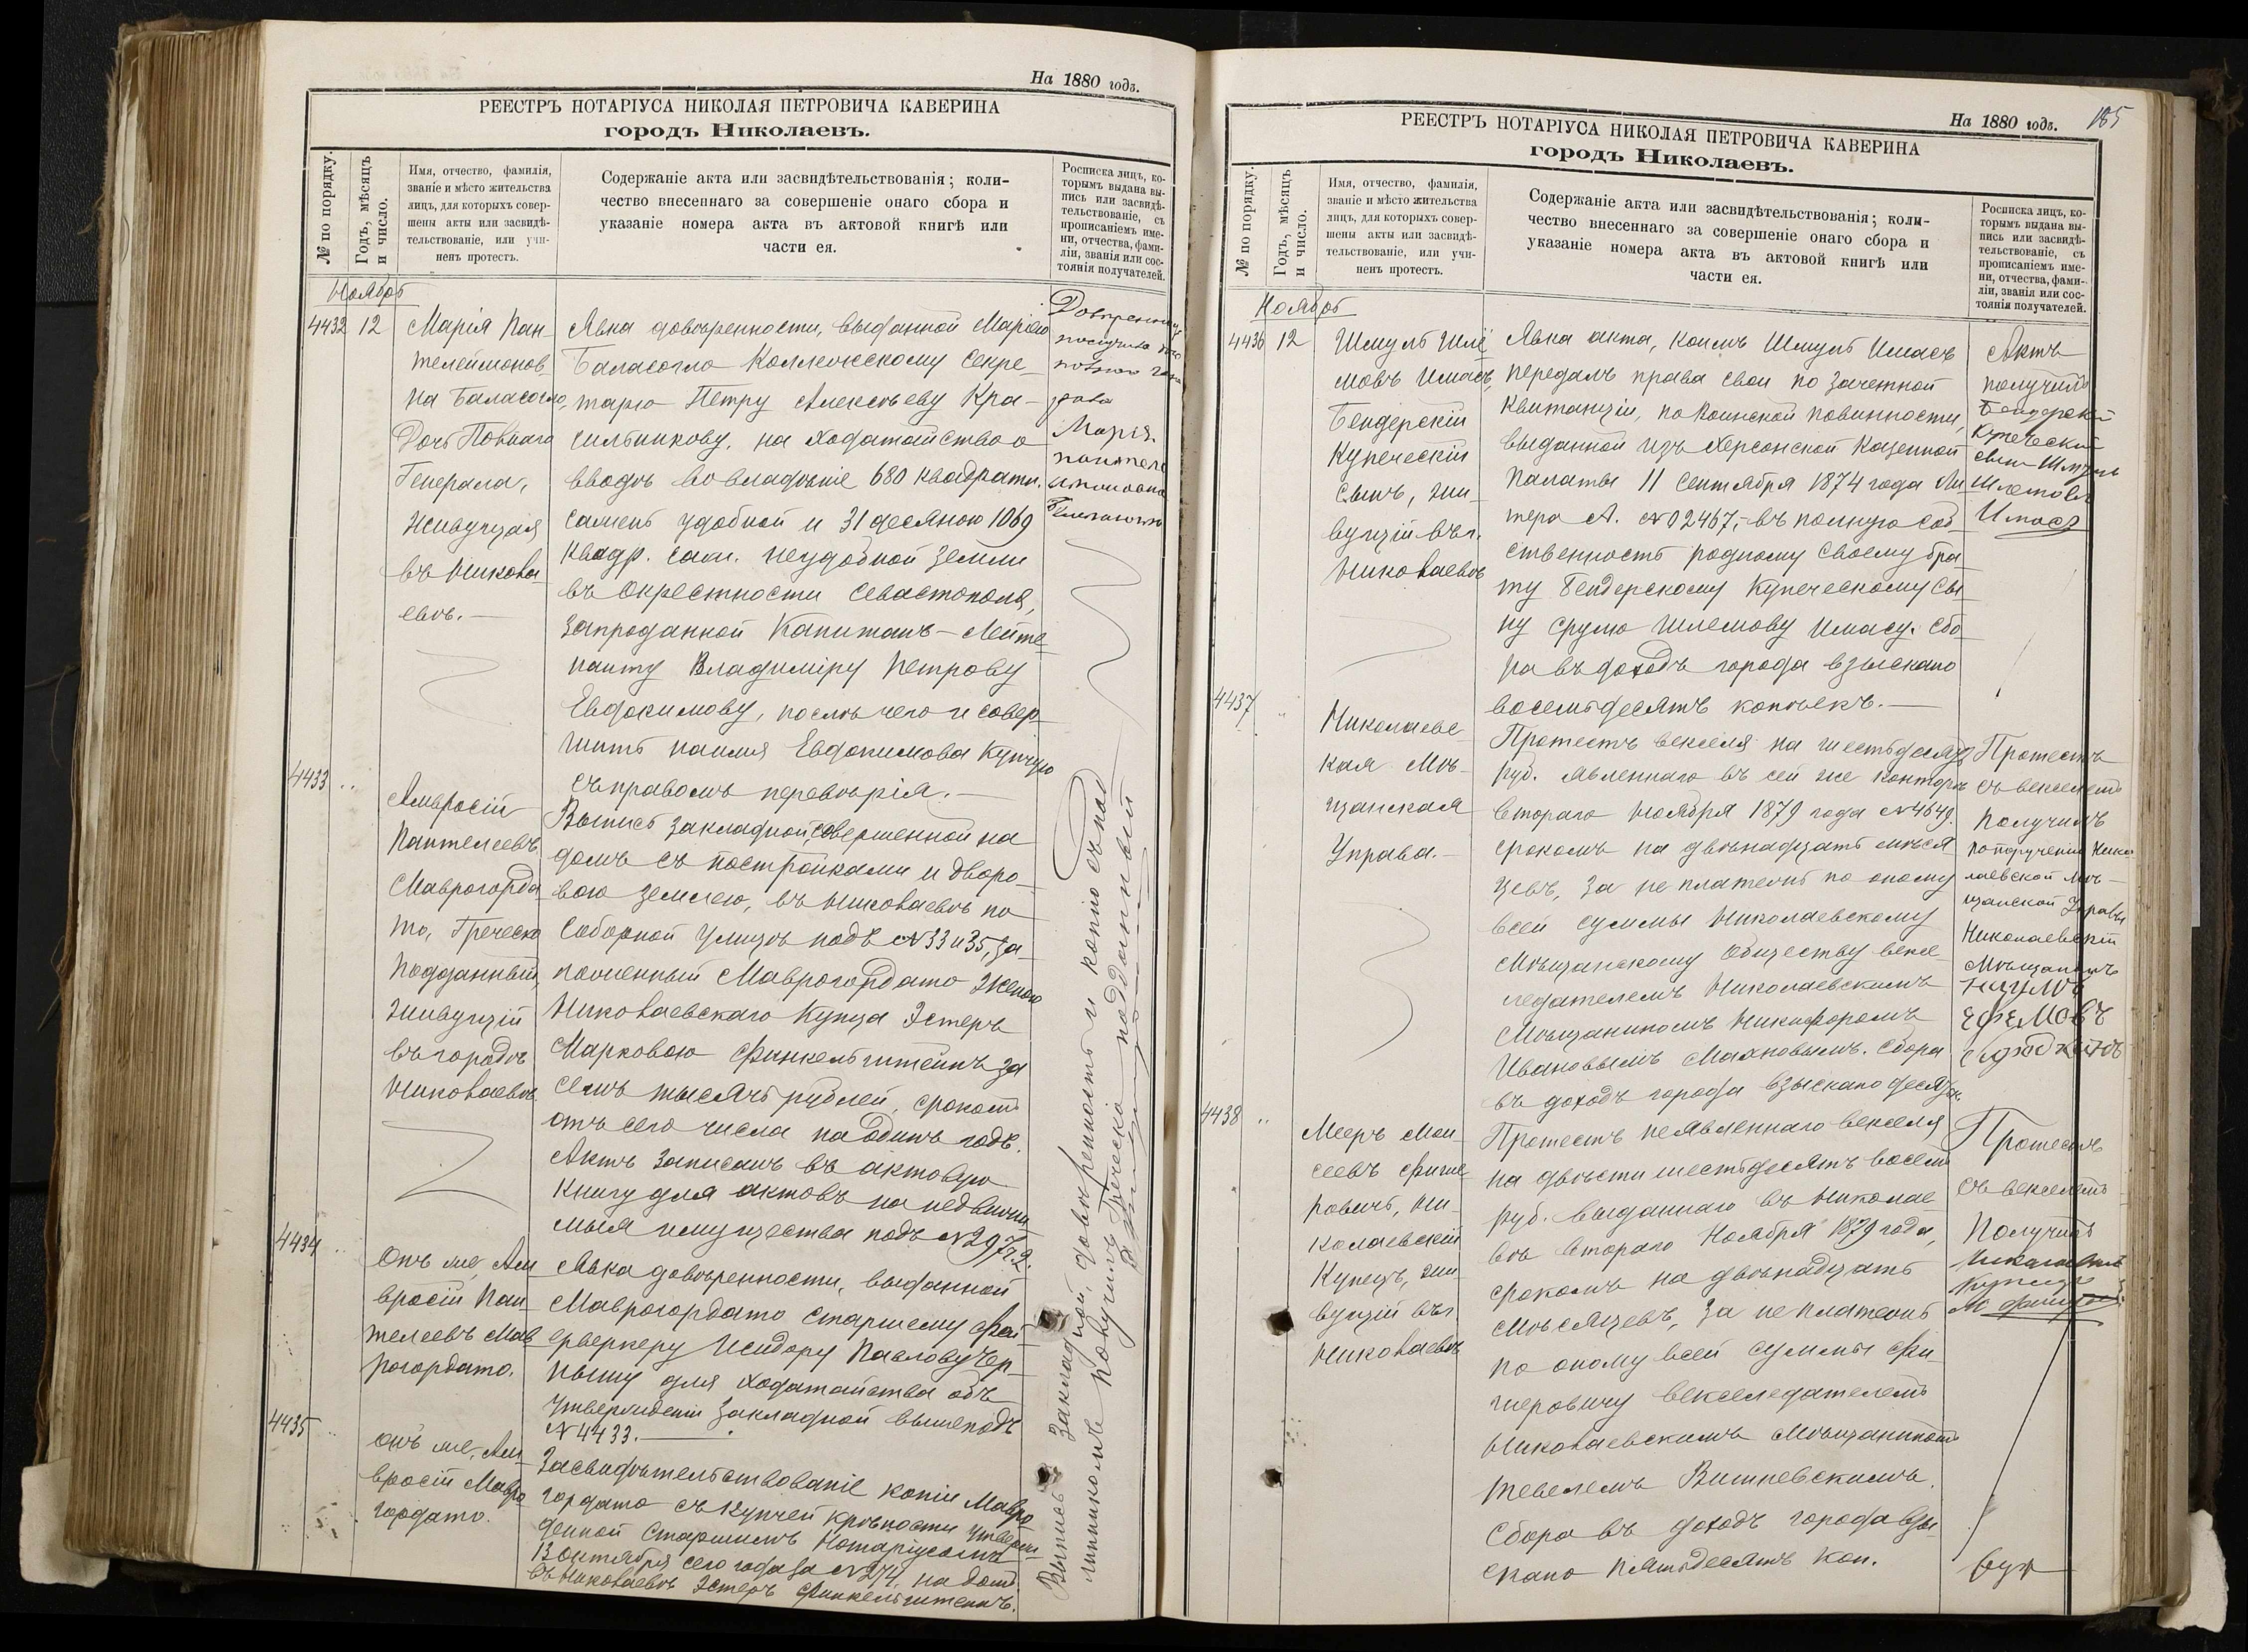 На 1880 годъ.
РЕЕСТРЪ НОТАРІУСА НИКОЛАЯ ПЕТРОВИЧА КАВЕРИНА
городъ Николаевъ.
№ по порядку.
Годъ, мѣсяцъ
и число.
Имя, отчество, фамилія,
званіе и мѣсто жительства
лицъ, для которыхъ совер-
шены акты или засвидѣ-
тельствованіе, или учи-
ненъ протестъ.
Содержаніе акта или засвидѣтельствованія; коли-
чество внесеннаго за совершеніе онаго сбора и
указаніе номера акта въ актовой книгѣ или
части ея.
Росписка лицъ, ко-
торымъ выдана вы-
пись или засвидѣ-
тельствованіе, съ
прописаніемъ име-
ни, отчества, фами-
ліи, званія или сос-
тоянія получателей.
Ноябрь
4432
12
Марія Пан
телеймонов
на Баласогло,
Дочь Полнаго
Генерала,
живущая
въ Никола
евѣ.—
Явка довѣренности, выданной Маріею
Баласогло Коллежскому Секре
тарю Петру Алексѣеву Кра-
сильникову, на ходатайство о
вводѣ во владѣніе 680 квадратн.
сажень удобной и 31 десяною 1069
квадр. саж. неудобной земли
въ окрестности Севастополя,
запроданной Капитанъ-Лейте
нанту Владиміру Петрову
Евдокимову, послѣ чего и совер
шить на имя Евдокимова Купчую
съ правомъ перевѣрія.—
Марія
4433
"
Амвросій
Пантелеевъ
Маврогорда
то, Греческо
подданный,
живущій
въ городѣ
Николаевѣ
Выпись закладной, совершенной на
домъ съ постройками и дворо
вою землею, въ Николаевѣ по
Соборной улицѣ подъ №33 и 35, за
ложенный Маврогордато женою
Николаевскаго Купца Эстеръ
Марковою Финкельштейнъ за
семь тысячъ рублей, срокомъ
отъ сего числа на одинъ годъ.
Актъ записанъ въ актовую
книгу для актовъ на недвижи
мыя имущества подъ №297 ч.2.
4434
"
Онъ же, Ам
вросій Пан
телеевъ Мав
рогордато.
Явка довѣренности, выданной
Маврогордато старшему Фей
ерверкеру Исидору Павлову Чер
ному для ходатайства объ
утвержденіи закладной выше подъ
№4433.—
4435
Онъ же, Ам
вросій Мавро
гордато.
Засвидѣтельствованіе копіи Мавро
гордато съ купчей крѣпости утверж
денной Старшимъ Нотаріусомъ
13 Октября сего года за №274, на домъ
въ Николаевѣ Эстеръ Финкельштейнъ.
Выпись закладной, довѣренность и копію съ под
линникомъ получилъ Греческо подданный
На 1880 годъ.
185
РЕЕСТРЪ НОТАРІУСА НИКОЛАЯ ПЕТРОВИЧА КАВЕРИНА
городъ Николаевъ.
№ по порядку.
Годъ, мѣсяцъ
и число.
Имя, отчество, фамилія,
званіе и мѣсто жительства
лицъ, для которыхъ совер-
шены акты или засвидѣ-
тельствованіе, или учи-
ненъ протестъ.
Содержаніе акта или засвидѣтельствованія; коли-
чество внесеннаго за совершеніе онаго сбора и
указаніе номера акта въ актовой книгѣ или
части ея.
Росписка лицъ, ко-
торымъ выдана вы-
пись или засвидѣ-
тельствованіе, съ
прописаніемъ име-
ни, отчества, фами-
ліи, званія или сос-
тоянія получателей.
Ноябрь
4436
12
Шмуль Шле
мовъ Имасъ,
Бендерскій
Купеческій
сынъ, жи
вущій въ г.
Николаевѣ
Явка акта, коимъ Шмуль Имасъ
передалъ права свои по зачетной
квитанціи, по воинской повинности,
выданной изъ Херсонской Казенной
Палаты 11 Сентября 1874 года Ли
тера А. №02467,- въ полную соб
ственность родному своему бра
ту Бендерскому Купеческому сы
ну Срулю Шлемову Имасу. Сбо
ра въ доходъ города взыскано
восемьдесятъ копѣекъ.—
Актъ
получилъ
Бендерскій
Купеческій
сынъ Шмуль
Шлемовъ
Имасъ
4437
"
Николаевс
кая Мѣ
щанская
Управа.—
Протестъ векселя на шестьдесятъ
руб. явленнаго въ сей же конторѣ
втораго Ноября 1879 года №4649.
срокомъ на двѣнадцать мѣся
цевъ, за не платежъ по оному
всей суммы Николаевскому
Мѣщанскому Обществу вексе
ледателемъ Николаевскимъ
Мѣщаниномъ Никифоромъ
Ивановымъ Махновымъ. Сбора
въ доходъ города взыскано десять
Протестъ
съ векселемъ
получилъ
по порученію Нико
лаевской Мѣ-
щанской Управы
Николаевскій
Мѣщанинъ
Наумъ
Ефемовъ
4438
"
Мееръ Мои
сеевъ Фише
ровичъ, Ни
колаевскій
Купецъ, жи
вущій въ г.
Николаевѣ
Протестъ неявленнаго векселя
на двѣсти шестьдесятъ восемь
руб. выданнаго въ Николае
вѣ втораго Ноября 1879 года,
срокомъ на двѣнадцать
мѣсяцевъ, за не платежъ
по оному всей суммы Фи
шеровичу векселедателемъ
Николаевскимъ Мѣщаниномъ
Тевелемъ Вишневскимъ.
Сбора въ доходъ города взы
скано пятьдесятъ коп.
Протестъ
съ векселемъ
получилъ
Николаевскій
Купецъ